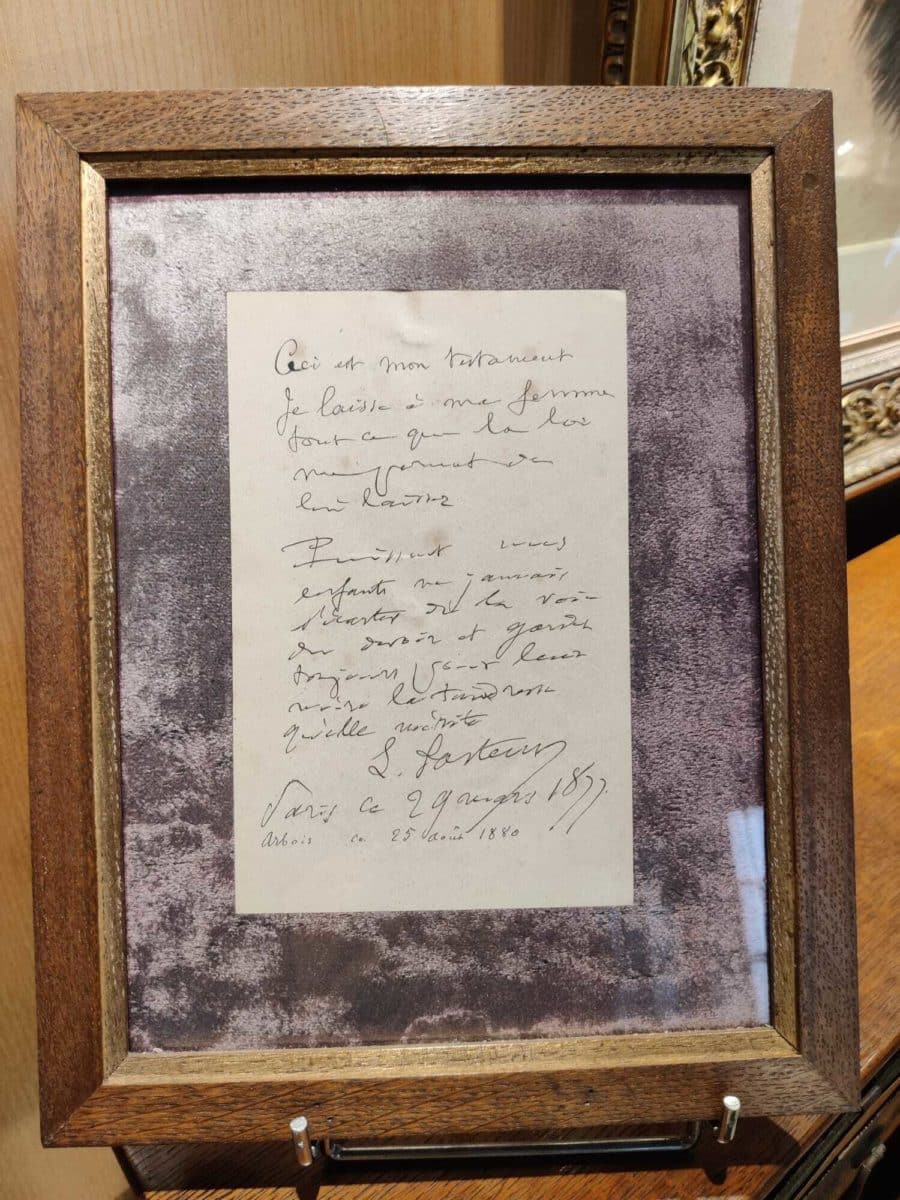 Ceci est mon testament
Je laisse à ma femme
tout ce que la loi
me permet de
lui laisser
Puissent mes
enfants ne jamais
s'écarter de la voie
du devoir et garder
toujours pour leur
mère la tendresse
qu'elle mérite
L. Pasteur
Paris ce 29 mars 1877.
Arbois ce 25 août 1880